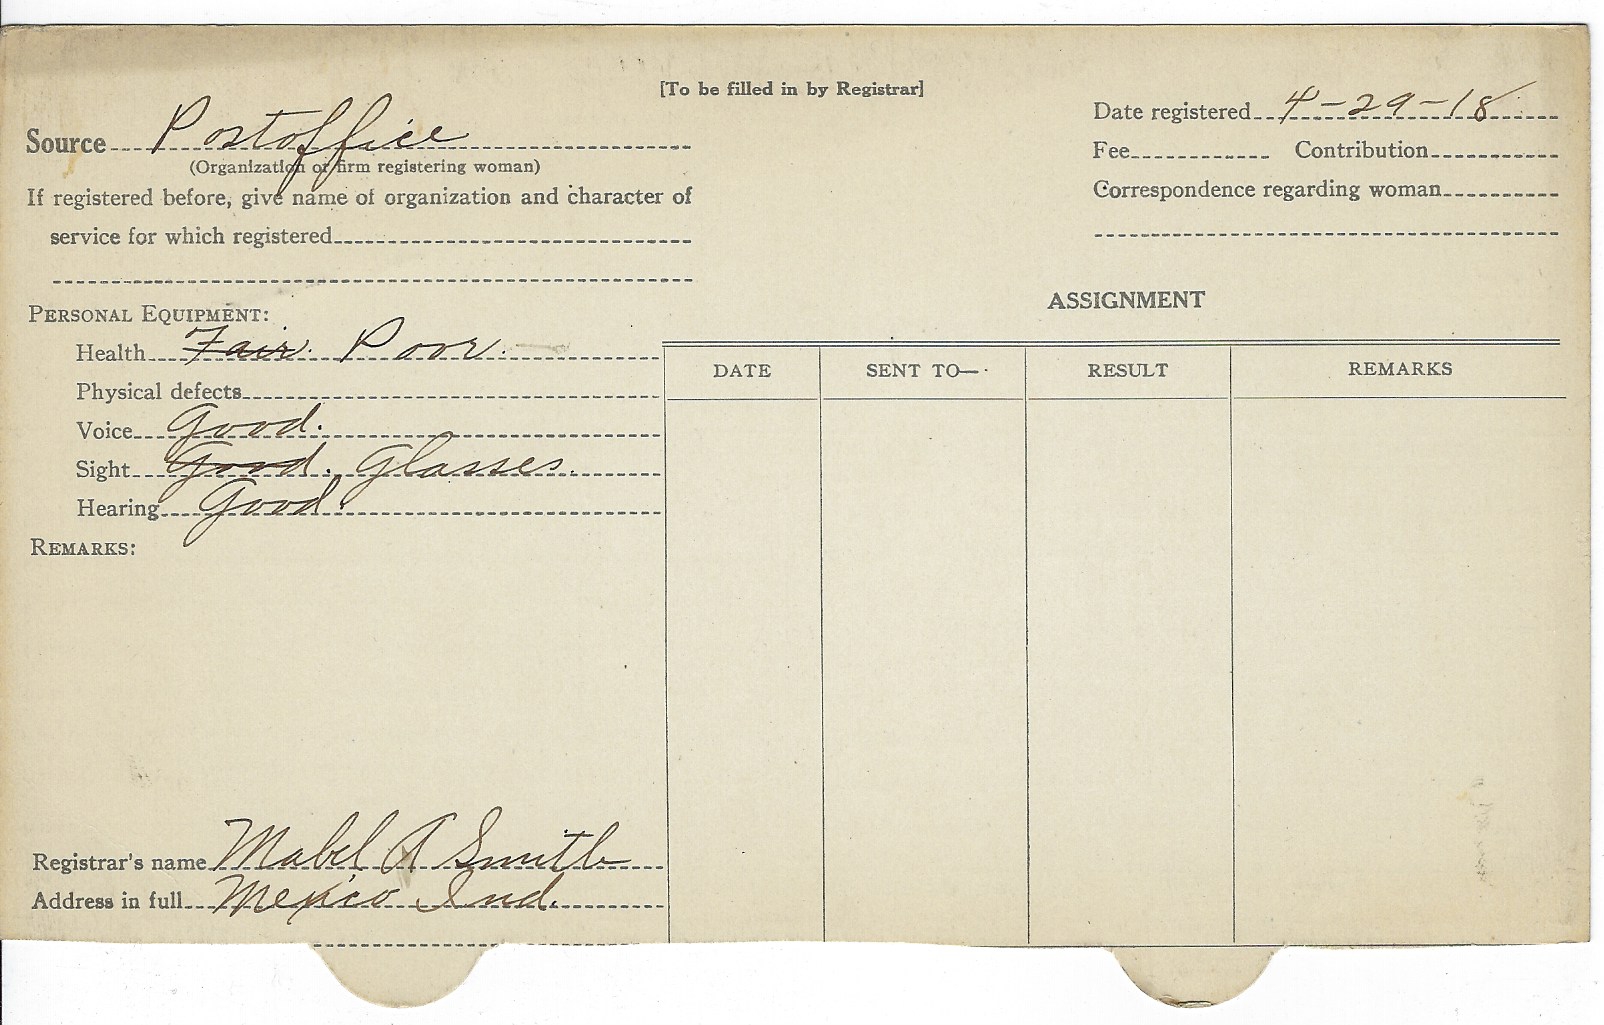 [To be filled in by Registrar]
Source Postoffice
(Organization or firm registering woman)
If registered before, give name of organization and character of
service for which registered
Date registered 4-29-18
Fee Contribution
Correspondence regarding woman
PERSONAL EQUIPMENT:
Health Fair. Poor.
Physical defects
Voice Good.
Sight Good. Glasses.
Hearing Good.
REMARKS:
Registrar's name Mabel A Smith
Address in full Mexico Ind.
ASSIGNMENT
DATE SENT TO— RESULT REMARKS